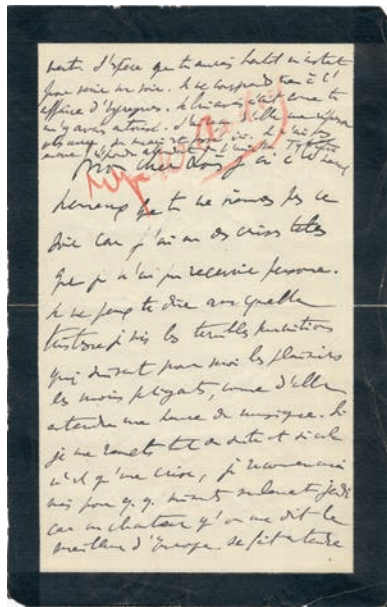 J'espère que tu auras un instant
pour venir me voir. Je ne comprends rien à l'
affaire d'Eyragues. Je lui avais écrit comme tu
m'y avais autorisé. J'ai d'elle une réponse
Mon cher Louis j'ai été
heureux que tu ne viennes pas ce
soir car j'ai eu des crises telles
que je n'ai pu recevoir personne.
Je ne peux te dire avec quelle
tristesse je vois les terribles punitions
qui suivent pour moi les plaisirs
les moins fatigants, comme d'aller
entendre une heure de musique. Si
je me remets tout de suite et si cela
n'est qu'une crise, je recommencerai
mais pour q.q. instants seulement jeudi
car un chanteur qu'on me dit le
meilleur d'Europe se fait entendre